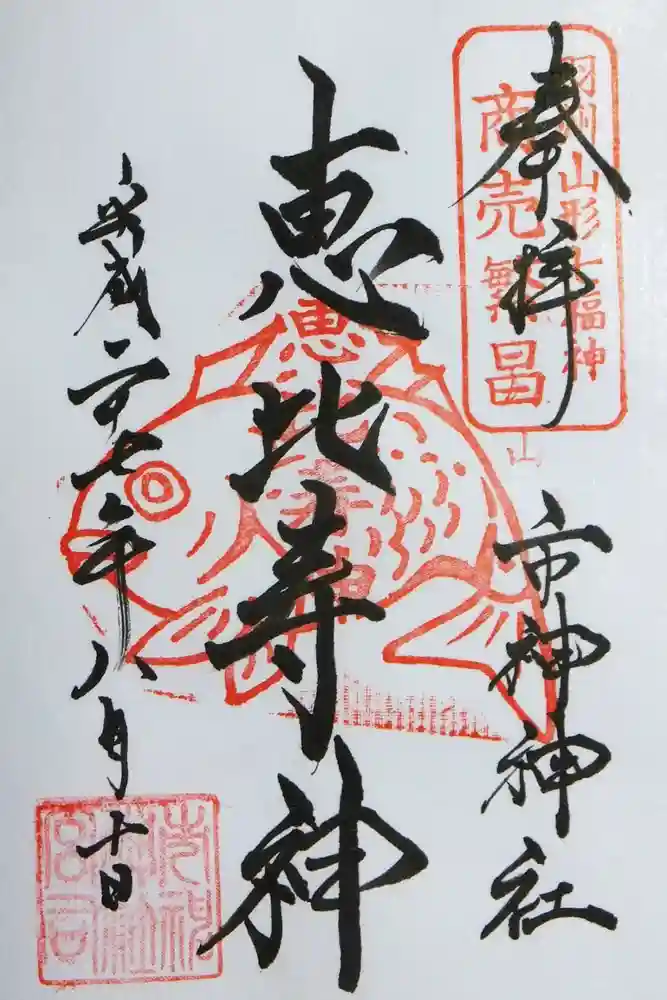 奉拝
羽州山形七福神
商売繁昌
市神神社
恵比寿神
恵比寿神
平成二十七年八月十日